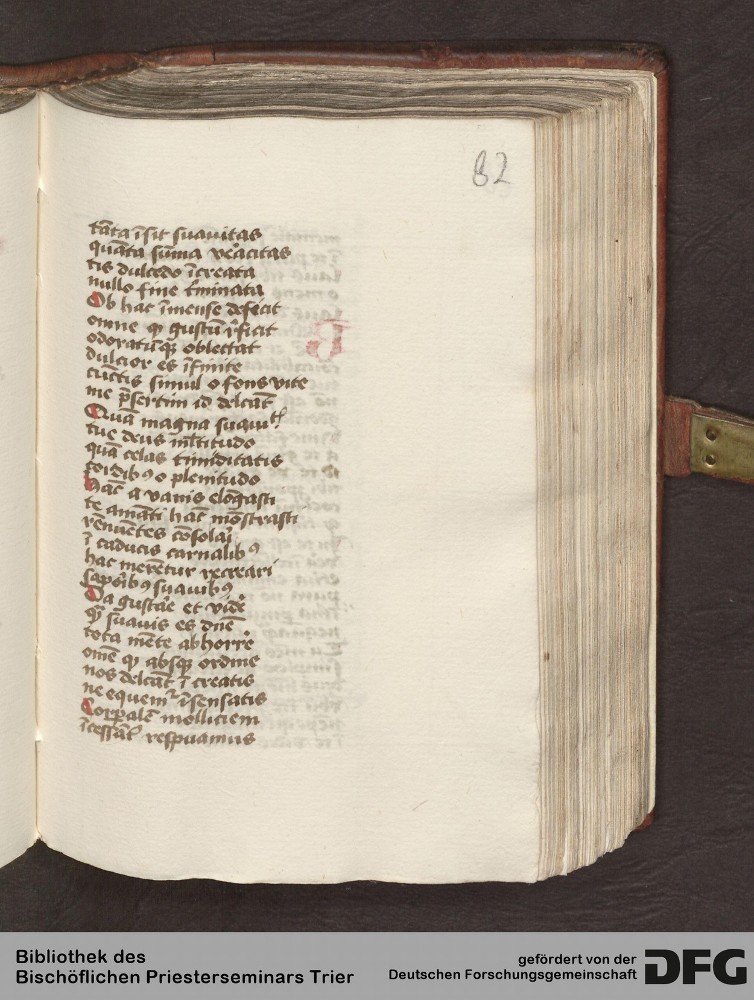 82
tāta ī sit suauitas
quāta sūma veracitas
tis dulcedo īcreata
nullo fine t̄minata
Ob hac īmense defecit
omne qͥ gustū r̄ficit
odoratūqꝫ oblectat
dulcior es īfinite
cūctis simul o fons vite
me p̄sertim id delcāt
Quā magna suauitᵗˡ
tue deus ml̄titudo
quā celas timiditatis
cordibꝰ o plenitudo
Hāc a vanis elōgasti
te amāti hāc mōstrasti
rēnuētes cōsolari
ī caducis carnalibꝰ
hac merētur recreari
saporibꝰ suauibꝰ
Da gustare et videre
qͥ suauis es dn̄e
tota mēte abhorrere
om̄e qͥ absqꝫ ordine
nos delcāt ī creatis
ne equemur īsensatis
Corꝑalē molliciem
īcessāt respuamus
Bibliothek des
Bischöflichen Priesterseminars Trier
gefördert von der
Deutschen Forschungsgemeinschaft
DFG